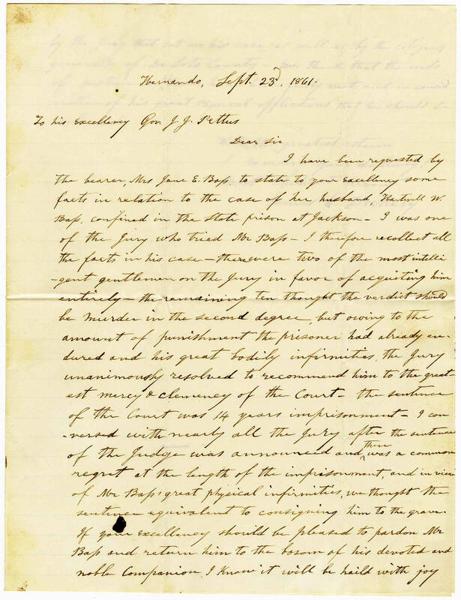 Hernando, Sept. 23d, 1861.
To his Excellency Gov. J. J. Pettus
Dear Sir
I have been requested by
the bearer, Mrs Jane E. Bass to state to your Excellency some
facts in relation to the case of her husband, W.
Bass, confined in the State prison at Jackson - I was one
of the Jury who tried Mr Bass - I therefore recollect all
the facts in his case - there were two of the most intelli
-gent gentlemen on the Jury in favor of acquiting him
entirely - the remaining ten thought the verdict should
be murder in the second degree, but owing to the
amount of punishment the prisoner had already en-
dured and his great bodily infirmities, the Jury
unanimously resolved to recommend him to the great
est mercy & clemency of the Court - the sentence
of the Court was 14 years imprisonment - I con
-versed with nearly all the Jury after the sentence
of the Judge was announced and there was a common
regret at the length of the imprisonment, and in view
of Mr Bass' great physical infirmities, we thought the
sentence equivalent to consigning him to the grave.
If your excellency should be pleased to pardon Mr
Bass and return him to the bosom of his devoted and
noble Companion I know it will be haild with joy